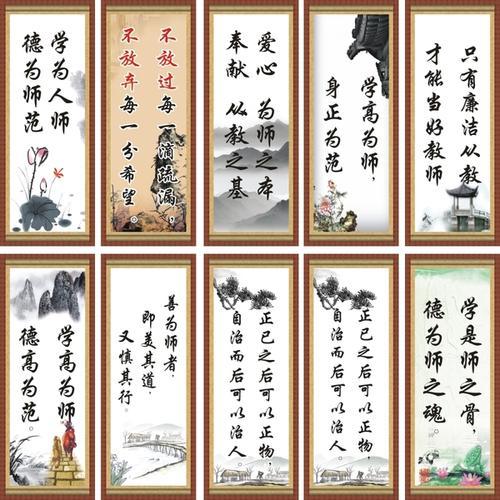 学为人师
德为师范
不放过每一滴疏漏，
不放弃每一分希望。
爱心 为师之本
奉献 从教之基
学高为师，
身正为范
只有廉洁从教
才能当好教师
学高为师
德高为范。
善为师者，
即美其道，
又慎其行。
正己之后可以正物，
自治而后可以治人。
正己之后可以正物，
自治而后可以治人。
学是师之骨，
德为师之魂。